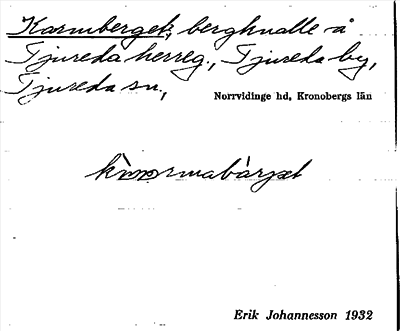 Karmberget, berghnalle å
Tjureda herreg., Tjureda by,
Tjureda sn,
Norrvidinge hd, Kronobergs län
Erik Johannesson 1932